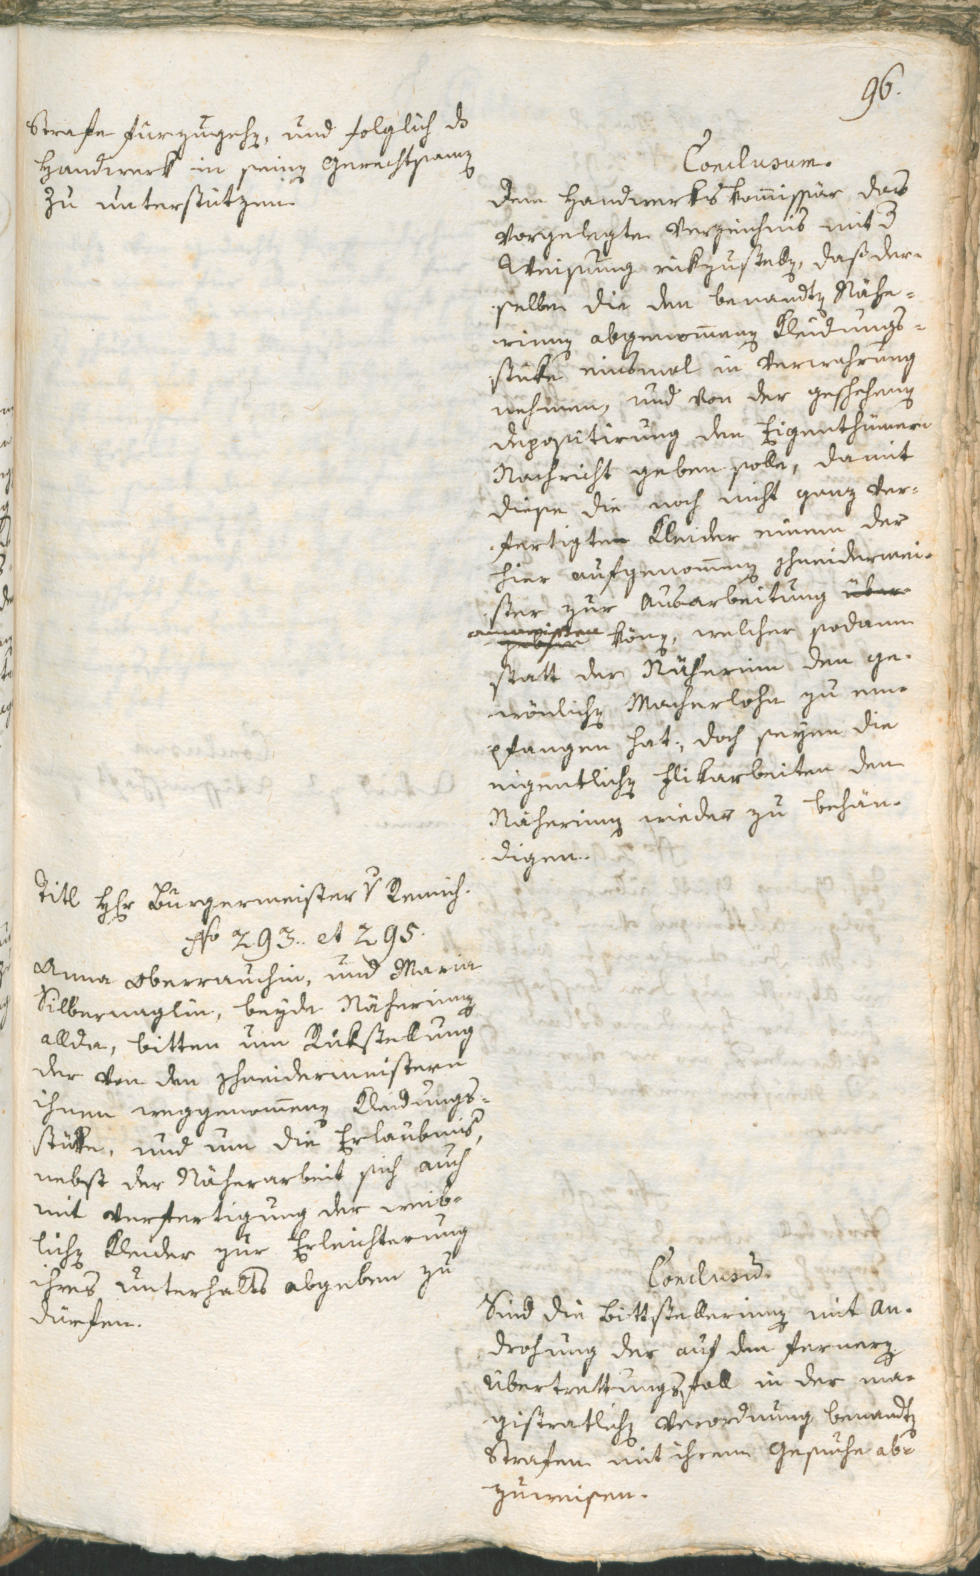 96.
Strafe fürzugehen, und folglich ds
Handwerk in seinen Gerechtsamen
zu unterstützen.
Conclusum.
dem Handwerkskommissär das
vorgelegte Verzeichnis mit der
Weisung rükzustellen, daß der-
selbe die den benandten Nähe-
rinnen abgenommenen Kleidungs-
stüke einsmal in Verwahrung
nehmen, und von der geschehenen
depositirung den Eigenthümern
Nachricht geben solle, damit
diese die noch nicht ganz ver-
fertigten Kleider einem der
hier aufgenommenen Schneidermei-
ster zur Ausarbeitung über-
geben anweisen können, welcher sodann
statt der Näherinn den ge-
wönlichen Macherlohn zu em-
pfangen hat, doch seyen die
eigentlichen Flikarbeiten den
Näherinnen wieder zu behän-
digen.
Titl Hr Burgermeister v Remich.
No 293. et 295.
Anna Oberrauchin, und Maria
Silbernaglin, beyde Näherinnen
allda, bitten um Rükstellung
der von den Schneidermeistern
ihnen weggenommenen Kleidungs-
stüke, und um die Erlaubnis,
nebst der Näherarbeit sich auch
mit Verfertigung der weib-
lichen Kleider zur Erleichterung
ihres Unterhalts abgeben zu
dürfen.
Conclusum.
Sind die Bittstellerinnen mit An-
drohung der auf den fernern
Übertrettungsfall in der ma-
gistratlichen Verordnung benandten
Strafen mit ihrem Gesuche ab-
zuweisen.